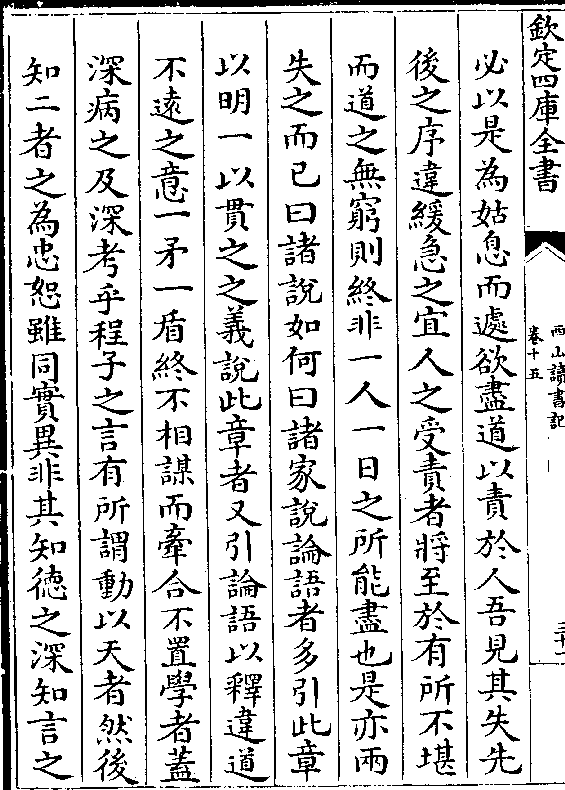 欽定四庫全書
西山讀書記
卷十五
必以是為姑息而遽欲盡道以責於人吾見其失先
後之序違緩急之宜人之受責者將至於有所不堪
而道之無窮則終非一人一日之所能盡也是亦兩
失之而已曰諸說如何曰諸家說論語者多引此章
以明一以貫之之義說此章者又引論語以釋違道
不遠之意一矛一盾終不相謀而牽合不置學者蓋
深病之及深考乎程子之言有所謂動以天者然後
知二者之為忠恕雖同實異非其知德之深知言之